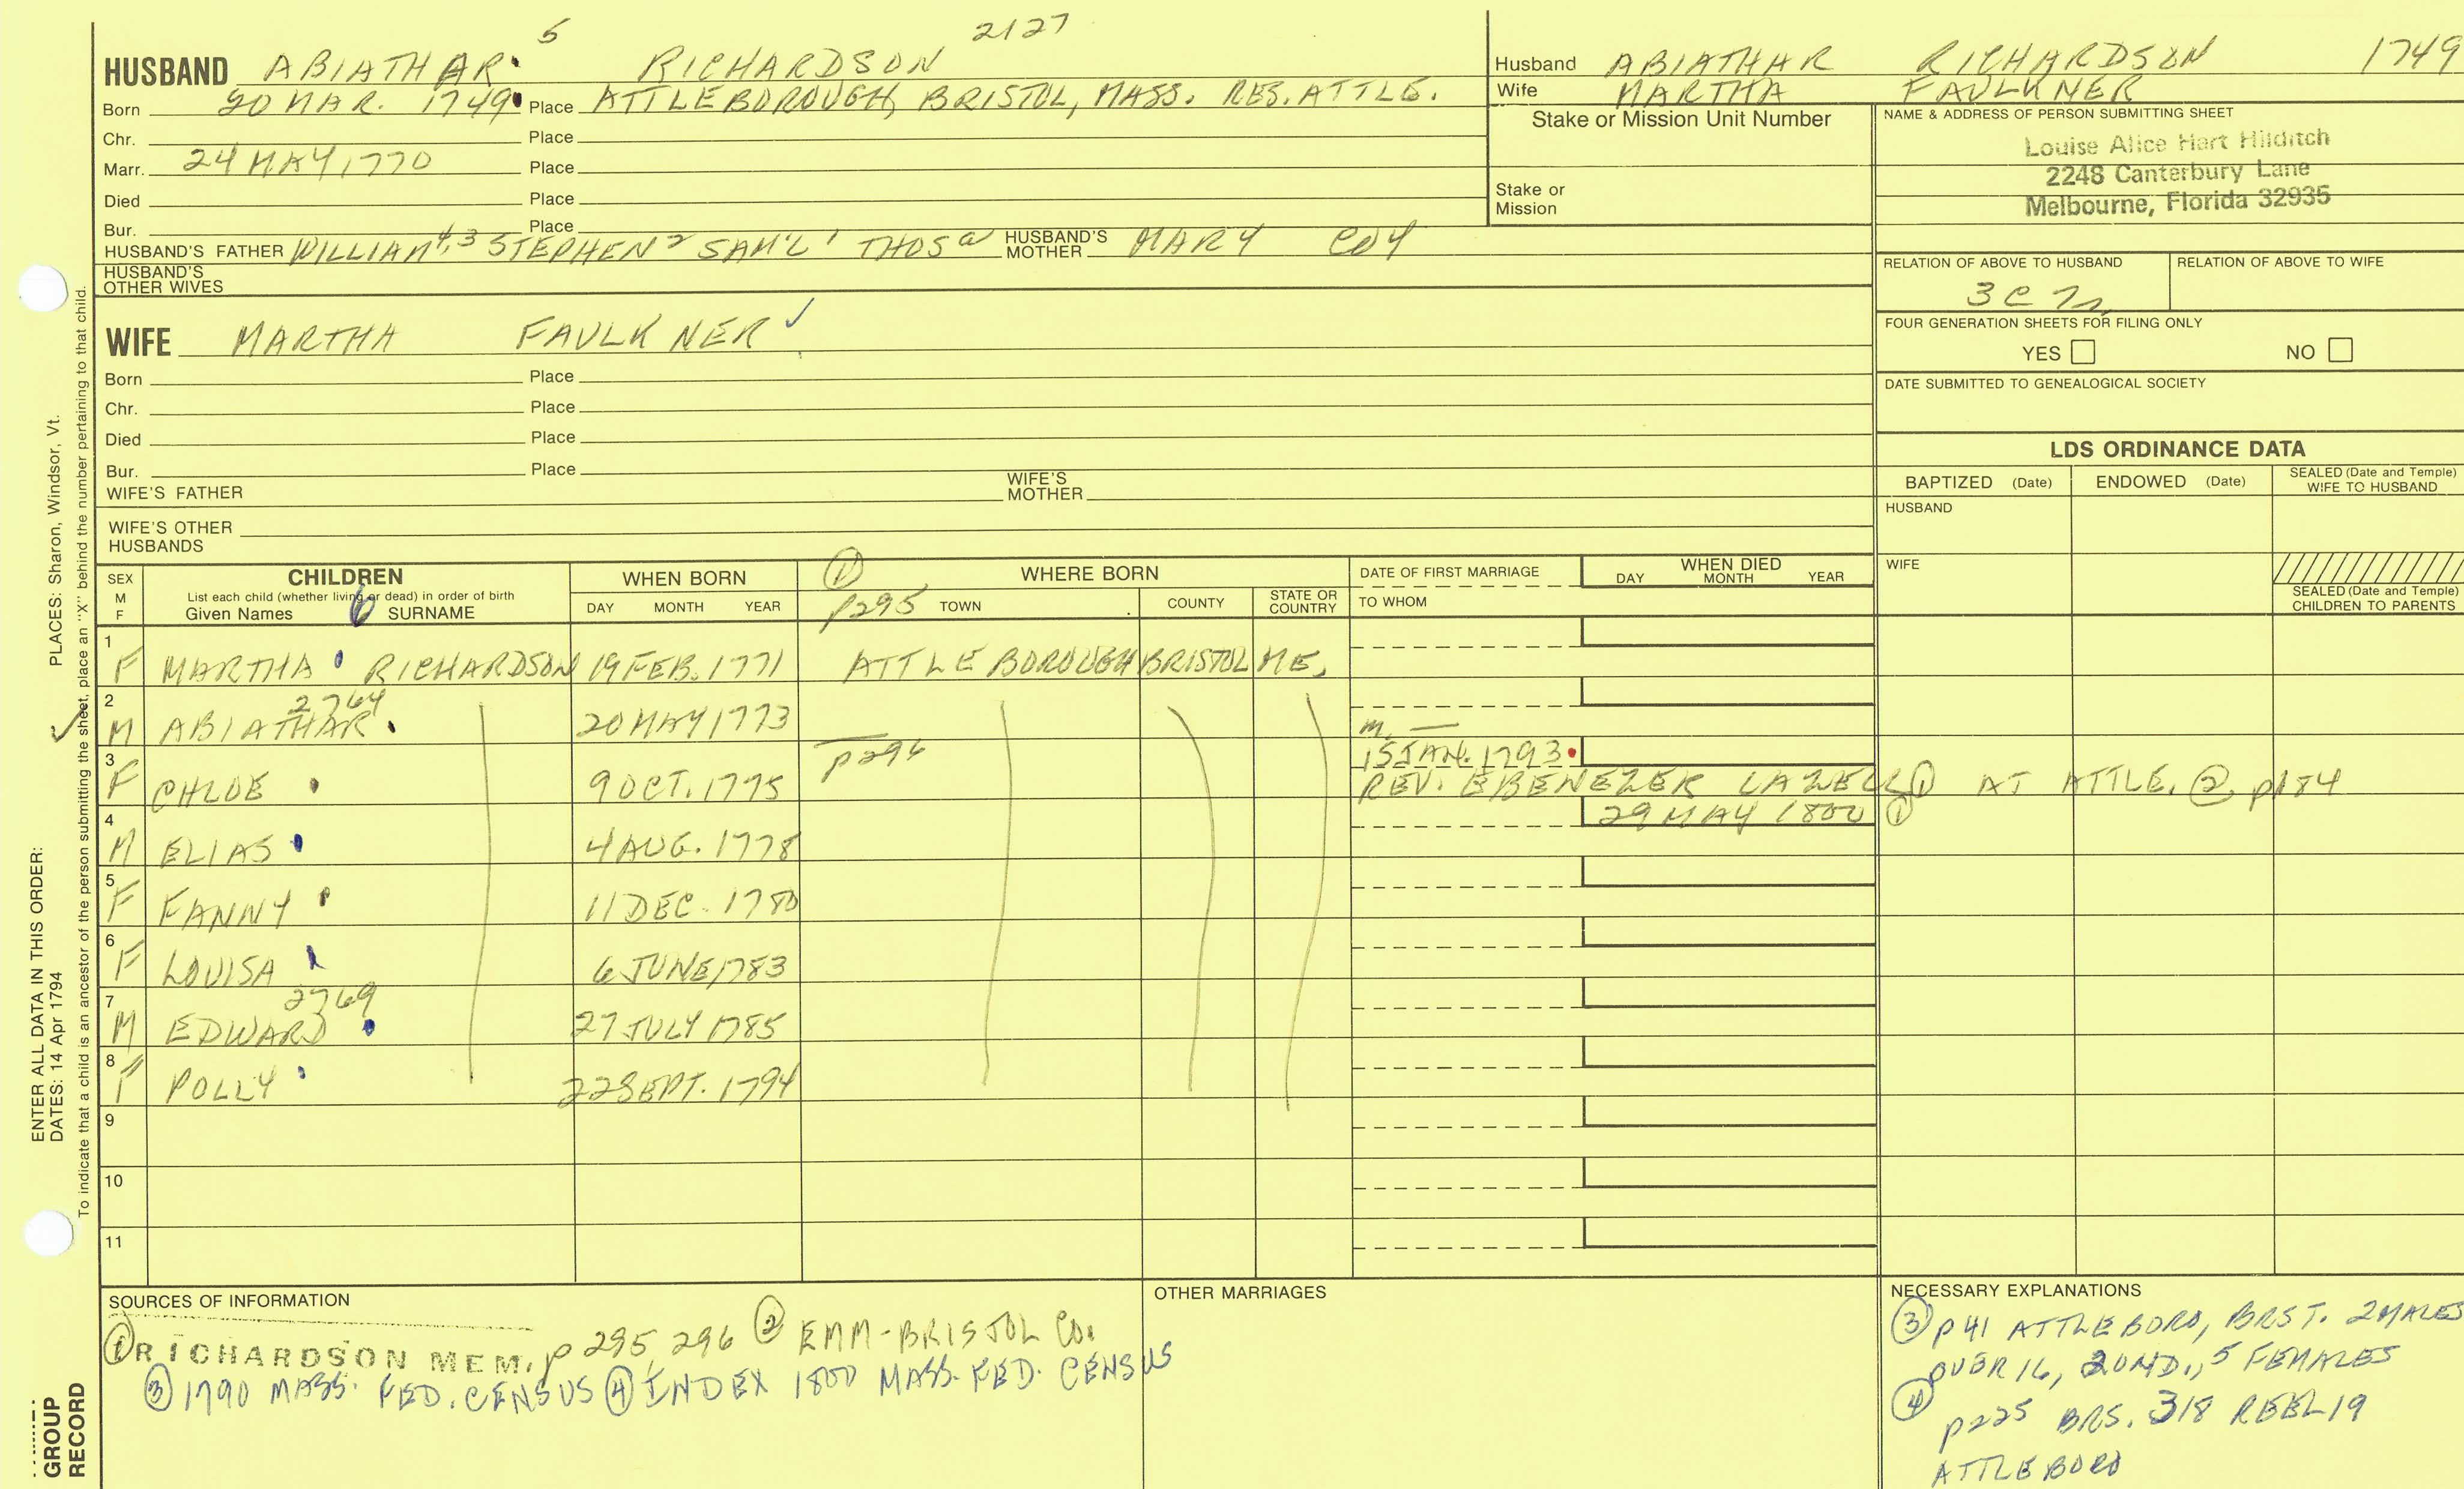 5 2127
HUSBAND ABIATHAR RICHARDSON
Born 20 MAR. 1749 Place ATTLEBOROUGH, BRISTOL, MASS. RES. ATTLE.
Chr. Place
Marr. 24 MAY 1770 Place
Died Place
Bur. Place
HUSBAND'S FATHER WILLIAM 4, 3 STEPHEN 2 SAM'L 1 THOS a HUSBAND'S MOTHER MARY COY
HUSBAND'S OTHER WIVES
Husband ABIATHAR RICHARDSON 1749
Wife MARTHA FAULKNER
Stake or Mission Unit Number
Stake or Mission
NAME & ADDRESS OF PERSON SUBMITTING SHEET
Louise Alice Hart Hilditch
2248 Canterbury Lane
Melbourne, Florida 32935
RELATION OF ABOVE TO HUSBAND RELATION OF ABOVE TO WIFE
3 C
FOUR GENERATION SHEETS FOR FILING ONLY
YES NO
DATE SUBMITTED TO GENEALOGICAL SOCIETY
WIFE MARTHA FAULKNER ✓
Born Place
Chr. Place
Died Place
Bur. Place
WIFE'S FATHER WIFE'S MOTHER
WIFE'S OTHER HUSBANDS
LDS ORDINANCE DATA
BAPTIZED (Date) ENDOWED (Date) SEALED (Date and Temple) WIFE TO HUSBAND
HUSBAND
WIFE
SEALED (Date and Temple) CHILDREN TO PARENTS
SEX M F
CHILDREN
List each child (whether living or dead) in order of birth
Given Names 6 SURNAME
WHEN BORN
DAY MONTH YEAR
① p295
WHERE BORN
TOWN COUNTY STATE OR COUNTRY
DATE OF FIRST MARRIAGE
TO WHOM
WHEN DIED
DAY MONTH YEAR
1 F MARTHA RICHARDSON 19 FEB. 1771 ATTLEBOROUGH BRISTOL ME.
2 M ABIATHAR 2764 20 MAY 1773 m. —
3 F CHLOE 9 OCT. 1775 p296 15 JAN. 1793
REV. EBENEZER LAZELL ① AT ATTLE. ② p184
4 M ELIAS 4 AUG. 1778 29 MAY 1800 ①
5 F FANNY 11 DEC. 1780
6 F LOUISA 6 JUNE 1783
7 M EDWARD 2769 27 JULY 1785
8 F POLLY 22 SEPT. 1794
9
10
11
SOURCES OF INFORMATION
① RICHARDSON MEM. p 295, 296 ② EMM-BRISTOL CO.
③ 1790 MASS. FED. CENSUS ④ INDEX 1800 MASS. FED. CENSUS
OTHER MARRIAGES
NECESSARY EXPLANATIONS
③ p 41 ATTLEBORO, BRST. 2 MALES
OVER 16, 2 UND., 5 FEMALES
④ p225 BRS. 318 REEL 19
ATTLEBORO
PLACES: Sharon, Windsor, Vt.
To indicate that a child is an ancestor of the person submitting the sheet, place an "X" behind the number pertaining to that child.
ENTER ALL DATA IN THIS ORDER:
DATES: 14 Apr 1794
GROUP
RECORD